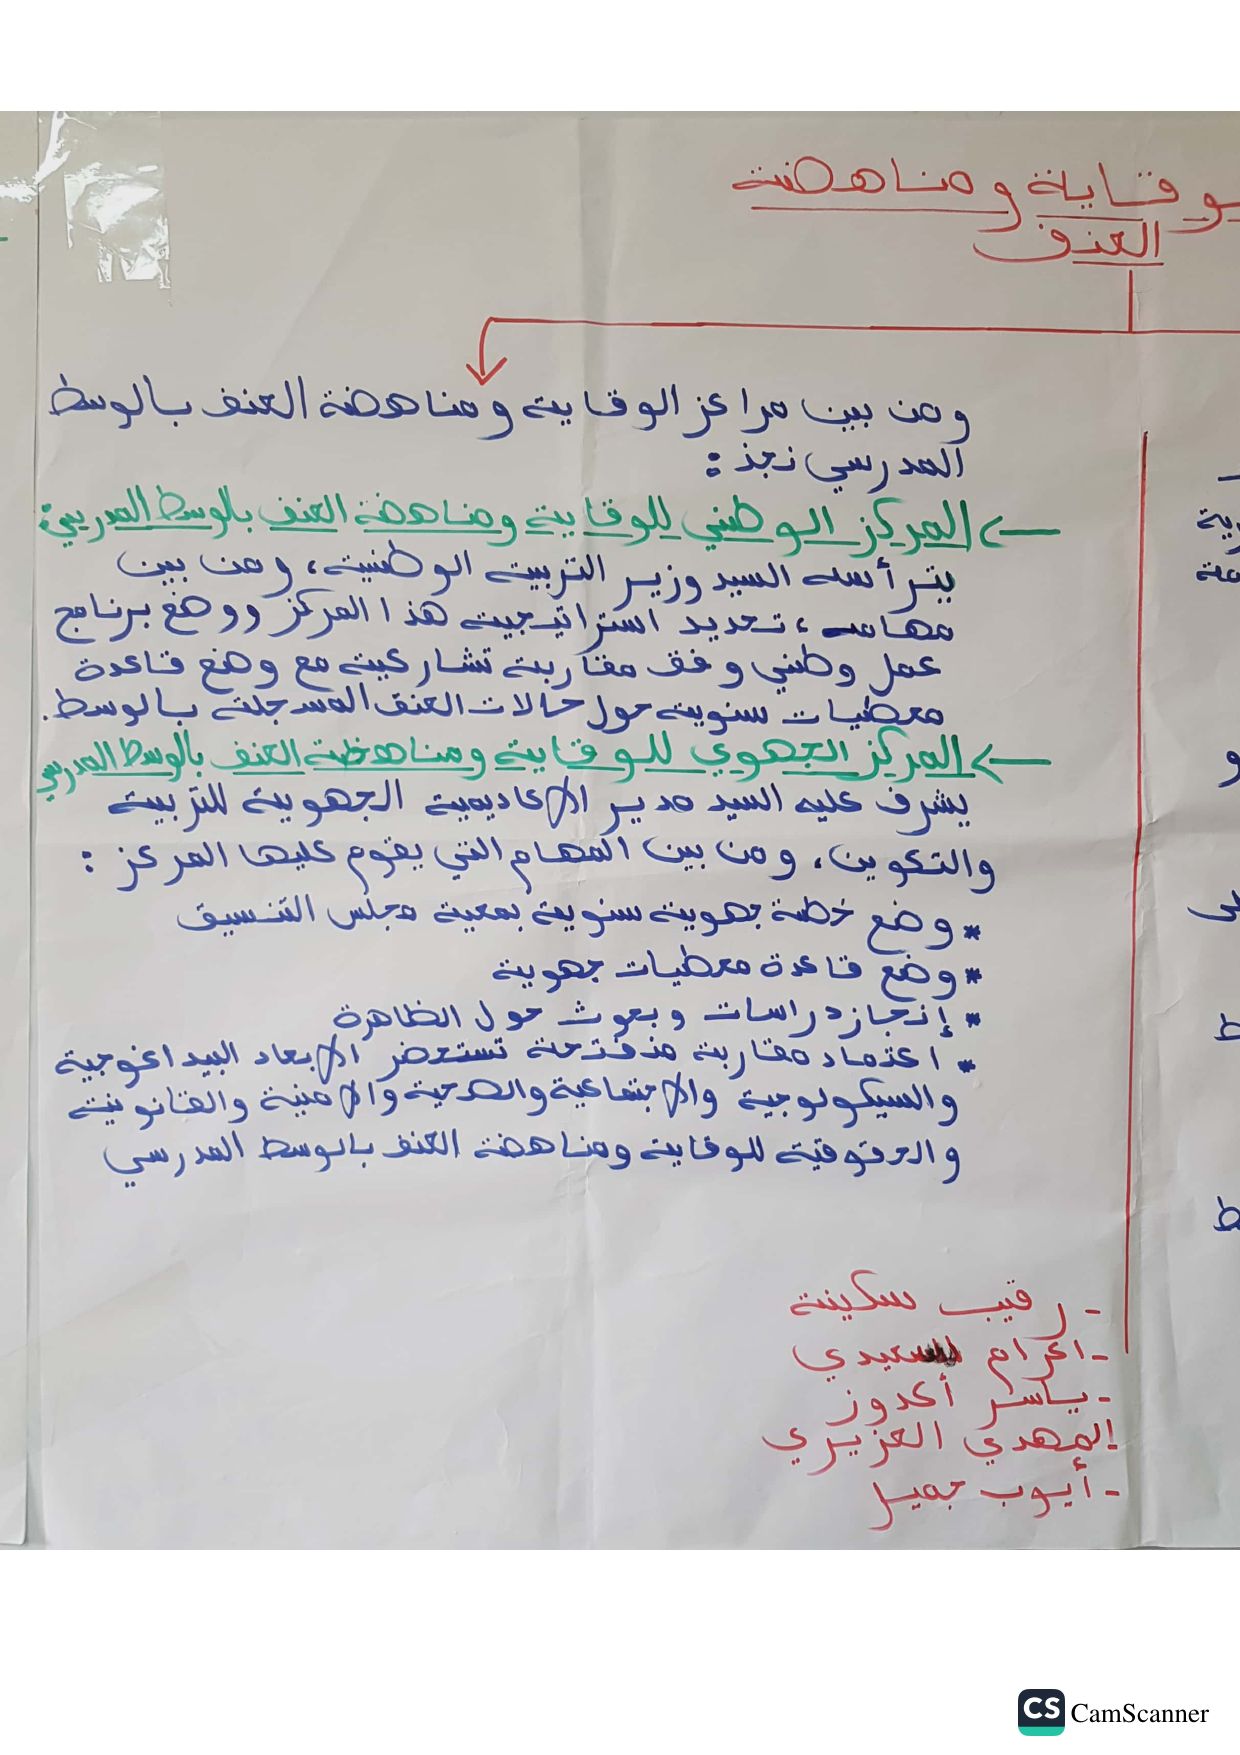 وقاية ومناهضة
العنف
ومن بين مراكز الوقاية ومناهضة العنف بالوسط
المدرسي نجذ :
المركز الوطني للوقاية ومناهضة العنف بالوسط المدرسي:
يترأسه السيد وزير التربية الوطنية، ومن بين
مهامه، تحديد استراتيجية هذا المركز ووضع برنامج
عمل وطني وفق مقاربة تشاركية مع وضع قاعدة
معطيات سنوية حول حالات العنف المسجلة بالوسط.
المركز الجهوي للوقاية ومناهظة العنف بالوسط المدرسي
يشرف عليه السيد مدير الاكاديمية الجهوية للتربية
والتكوين، ومن بين المهام التي يقوم عليها المركز :
* وضع خطة جهوية سنوية بمعية مجلس التنسيق
* وضع قاعدة معطيات جهوية
* إنجاز دراسات وبحوث حول الظاهرة
* اعتماد مقاربة منفتحة تستحضر الابعاد البيداغوجية
والسيكولوجية والاجتماعية والصحية والامنية والقانونية
والحقوقية للوقاية ومناهضة العنف بالوسط المدرسي
- رقيب سكينة
- اكرام السعيدي
- ياسر أكدوز
المهدي العزيري
- أيوب جميل
CS CamScanner